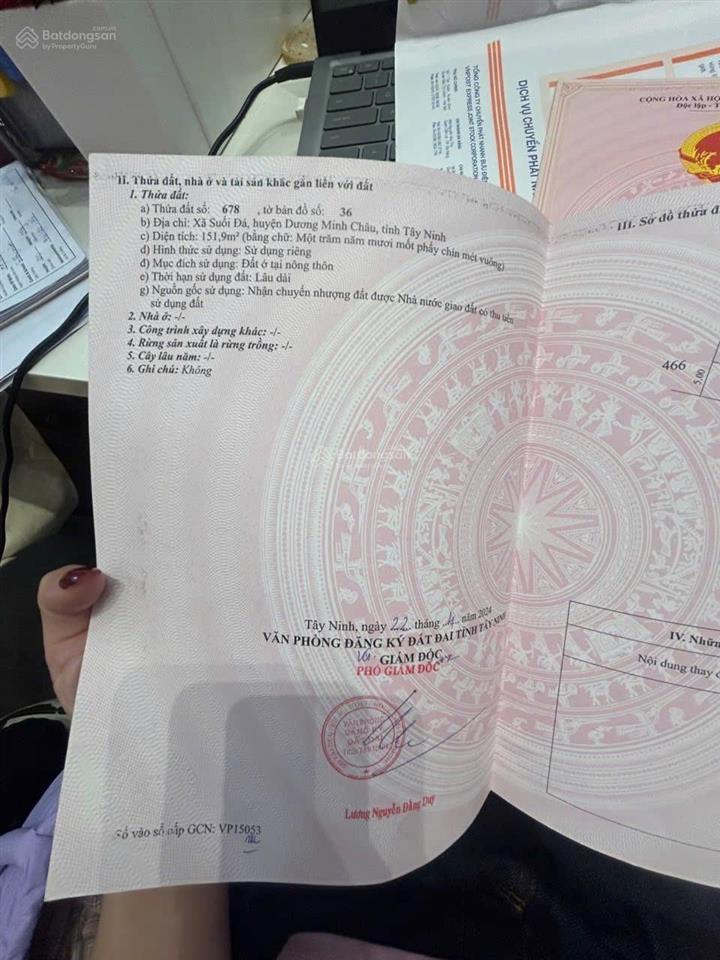 Batdongsan
by PropertyGuru
TỔNG CÔNG TY CHUYỂN PHÁT NHANH BƯU ĐIỆN
VNPOST EXPRESS JOINT STOCK CORPORATION
DỊCH VỤ CHUYỂN PHÁT
CỘNG HÒA XÃ HỘ
Độc lập - T
II. Thửa đất, nhà ở và tài sản khác gắn liền với đất
1. Thửa đất:
a) Thửa đất số: 678 , tờ bản đồ số: 36
b) Địa chỉ: Xã Suối Đá, huyện Dương Minh Châu, tỉnh Tây Ninh
c) Diện tích: 151,9m² (bằng chữ: Một trăm năm mươi mốt phẩy chín mét vuông)
d) Hình thức sử dụng: Sử dụng riêng
đ) Mục đích sử dụng: Đất ở tại nông thôn
e) Thời hạn sử dụng đất: Lâu dài
g) Nguồn gốc sử dụng: Nhận chuyển nhượng đất được Nhà nước giao đất có thu tiền
sử dụng đất
2. Nhà ở: -/-
3. Công trình xây dựng khác: -/-
4. Rừng sản xuất là rừng trồng: -/-
5. Cây lâu năm: -/-
6. Ghi chú: Không
III. Sơ đồ thửa đ
466
5.00
Batdongsan
by PropertyGuru
Tây Ninh, ngày 22 tháng 4 năm 2024
VĂN PHÒNG ĐĂNG KÝ ĐẤT ĐAI TỈNH TÂY NINH
GIÁM ĐỐC
PHÓ GIÁM ĐỐC
Lương Nguyễn Đăng Duy
Số vào sổ cấp GCN: VP15053
IV. Nhữn
Nội dung thay đ